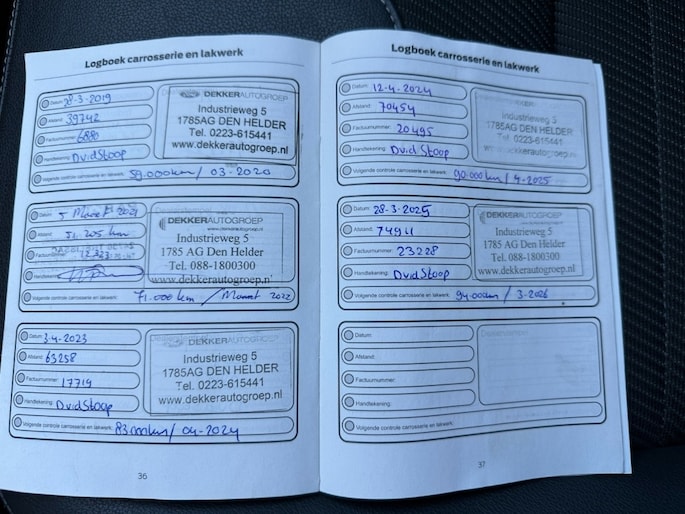 Logboek carrosserie en lakwerk
Datum: 28-3-2019
Afstand: 39742
Factuurnummer: 6880
Handtekening: DvidStoop
Volgende controle carrosserie en lakwerk: 59.000km / 03-2020
DEKKERAUTOGROEP
Industrieweg 5
1785AG DEN HELDER
Tel. 0223-615441
www.dekkerautogroep.nl
Datum: 5 Maart 2021
Afstand: 51.205 km
Factuurnummer: 12323
Handtekening:
Volgende controle carrosserie en lakwerk: 71.000 km / Maart 2022
DEKKERAUTOGROEP
Industrieweg 5
1785 AG Den Helder
Tel. 088-1800300
www.dekkerautogroep.nl
Datum: 3-4-2023
Afstand: 63258
Factuurnummer: 17719
Handtekening: DvidStoop
Volgende controle carrosserie en lakwerk: 83000km / 04-2024
DEKKERAUTOGROEP
Industrieweg 5
1785AG DEN HELDER
Tel. 0223-615441
www.dekkerautogroep.nl
36
Logboek carrosserie en lakwerk
Datum: 12-4-2024
Afstand: 70454
Factuurnummer: 20495
Handtekening: DvidStoop
Volgende controle carrosserie en lakwerk: 90.000km / 4-2025
Industrieweg 5
1785AG DEN HELDER
Tel. 0223-615441
www.dekkerautogroep.nl
Datum: 28-3-2025
Afstand: 74911
Factuurnummer: 23228
Handtekening: DvidStoop
Volgende controle carrosserie en lakwerk: 94.000km / 3-2026
DEKKERAUTOGROEP
Industrieweg 5
1785 AG Den Helder
Tel. 088-1800300
www.dekkerautogroep.nl
Datum:
Afstand:
Factuurnummer:
Handtekening:
Volgende controle carrosserie en lakwerk:
37